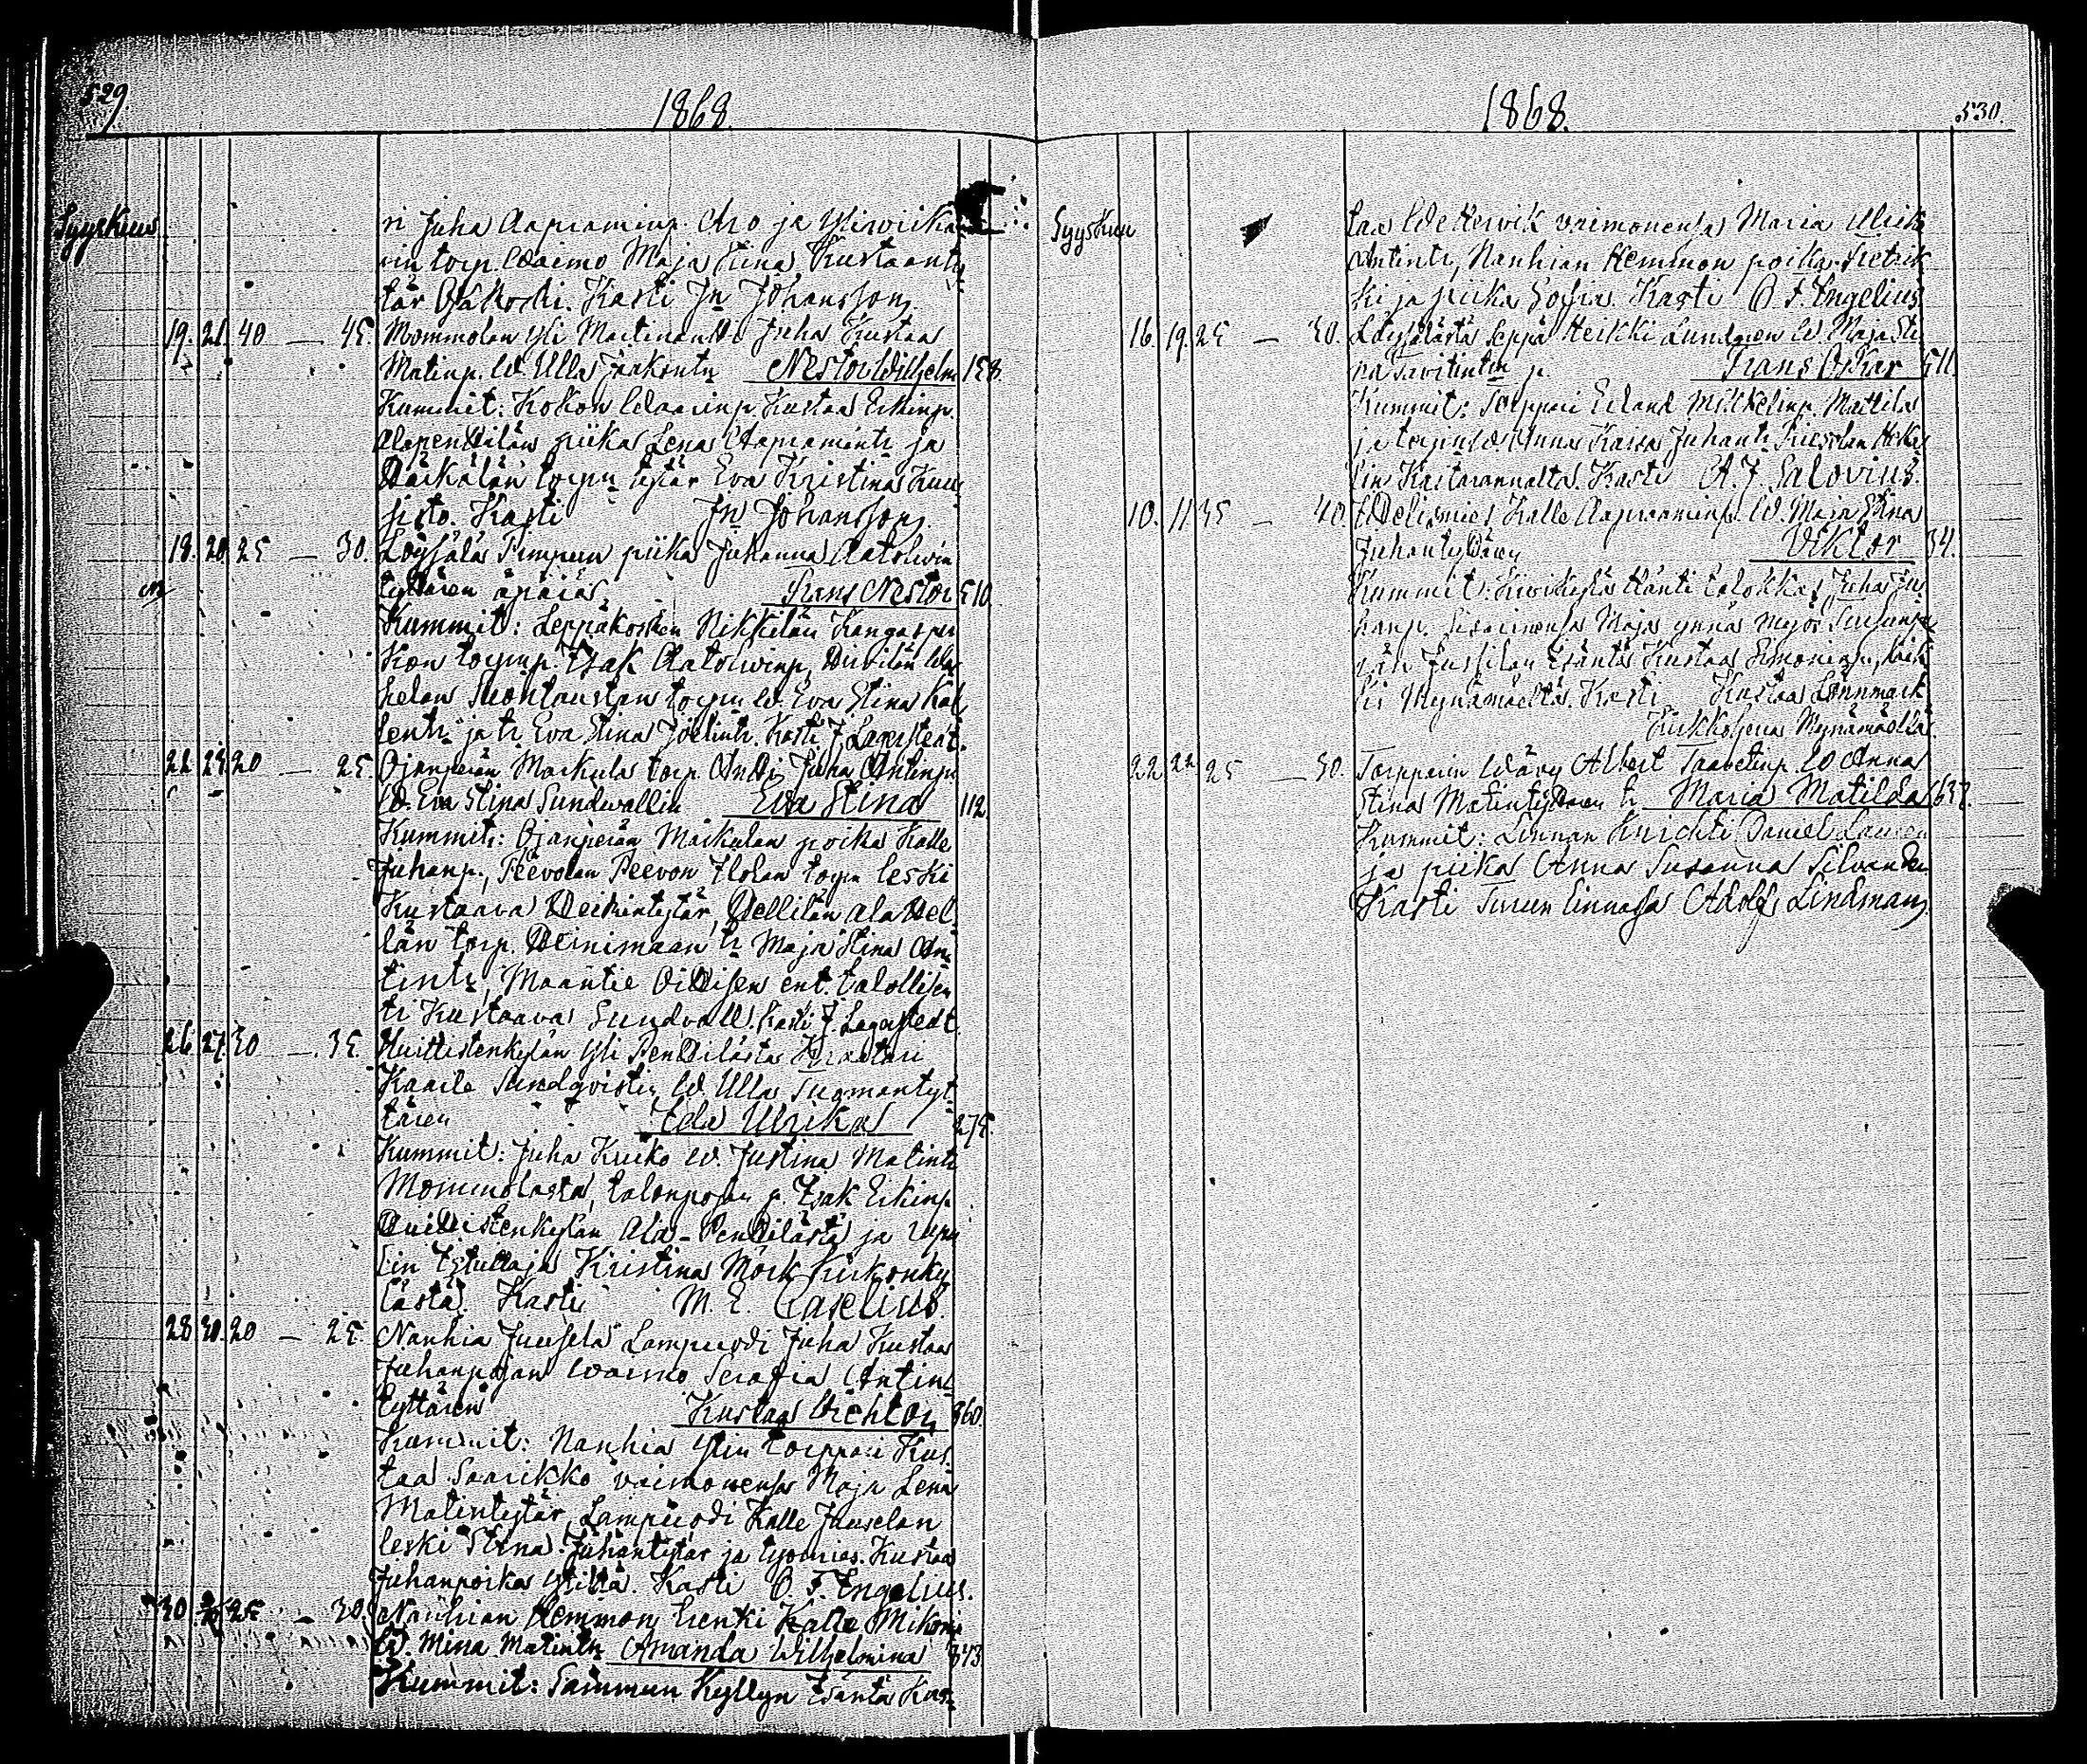 529.
1868.
Syyskuu
ri Juha Aapraminp. Aro ja Yliwiika
rin torp. Waimo Maja Stina Kustaanty
tär Ojakoski. Kasti Jn Johansson,
19. 21. 40 — 45. Mommolan Yli Martin Juha Kustaa
Matinp. W. Ulla Jaakontr Nestor Wilhelm 158.
Kummit: Kokon Waarinp. Kustaa Erkinp.
Alapenttilän piika Lena Aapramintr ja
torpn tytär Eva Kristina Kuu
sisto. Kasti Jn Johansson,
18. 20. 25 — 30. Löysälä Pimpun piika Juhanna Aatolwin
tyttären äpärä Frans Nestor 510
Kummit: Leppäkosken Nikkilän Kangasper
kon torpp. Isak Aatolwinp,
helan Suontaustan torpn w. Eva Stina Kal
lentr ja tr Eva Stina Joelintr. Kasti J. Lagerstedt.
22. 24. 20 — 25. Ojanperän Markula torp. Antti Juha Antinpn
W. Eva Stina Sundwallin Eva Stina 112
Kummit: Ojanperän Markulan poika Kalle
Juhanp., Peevolan Peevon Ilolan torpn leski
Kustaava Heikintytär, Hellilän ala Hel
län torp. Heinimaan tr Maja Stina An
tintr, Maantie Oittisen ent. talollisen
tr Kustaava Sundvall. Kasti J. Lagerstedt.
26. 27. 30 — 35. Huittistenkylän Yli Penttilästä Kraatari
Kaarle Sundqvistin W. Ulla Tuomantyt
tären Ida Ulrika 275.
Kummit: Juha Kuiko W. Justina Matintr
Mommolasta, talonpojan p. Isak Erkinp.
Huittistenkylän Ala-Penttilästä ja rupu
lin istuttaja Kristina Mörk Kirkonky
lästä. Kasti M. E. Caselius.
28 30. 20 — 25. Nanhia Juusela Lampuodi Juha Kustaa
Juhanpojan Waimo Serafia Antin
tyttären Kustaa Vihtor, 360.
Kummit: Nanhia Ylin torppari Kus
taa Saarikko vaimonensa Maja Lena
Matintytär, Lampuodi Kalle Juuselan
leski Stina Juhantytär ja työmies Kustaa
Juhanpoika Yliltä. Kasti O. F. Engelius.
30 2/10 25 — 30. Nanhian Hemmon Trenki Kalle Mikonp.
W. Mina Matintr Amanda Wilhelmina 343
Kummit: Sammun Kyllyn Isäntä Kus
1868.
530.
Syyskuu
taa Wetterwik vaimonensa Maria Ulrik
Antintr, Nanhian Hemmon poika Fretrik
ki ja piika Sofia. Kasti O. F. Engelius
16. 19. 25 — 30. Löysälästä seppä Heikki Lundgren W. Maja Sti
na Tavitintin p. Frans Oskar 511.
Kummit: Torppari Erland Mikkelinp. Mattila
ja torpin W. Anna Kaisa Juhantr
lin Kartarannalta. Kasti A. J. Salovius.
10. 11. 35 — 40. Itellismies Kalle Aapraaminp. W. Maja Stina
Juhantyttären Viktor 34.
Kummit: Kivikylä Hänti talokka Juha Ju
hanp.
Jussilan Isäntä Kustaa Simoninp,
ki Mynämäeltä. Kasti Kustaa Lönnmark
Kirkkoherra Mynämäellä.
22 22 25 — 30. Torpparin Wävy Albert Taavetinp. W Anna
Stina Matintyttären tr Maria Matilda 637.
Kummit: Linnan Knichti Daniel Lauren
ja piika Anna Susanna Silvander
Kasti Turun linnassa Adolf Lindman,